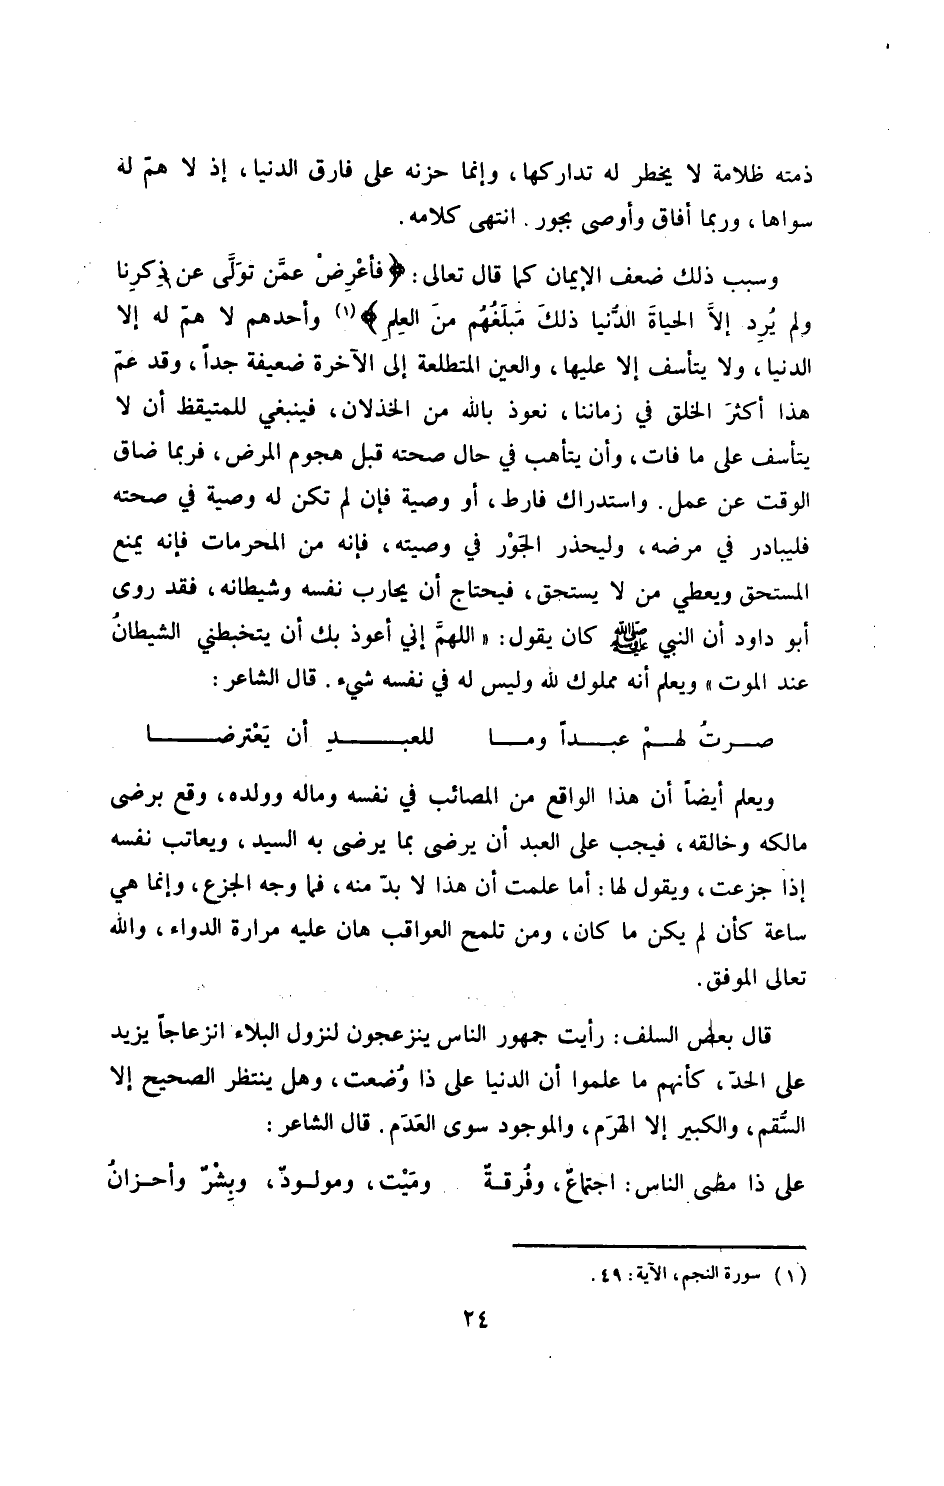 ذمته ظلامة لا يخطر له تداركها، وإنما حزنه على فارق الدنيا، إذ لا همّ له
سواها، وربما أفاق وأوصى بجور. انتهى كلامه.
وسبب ذلك ضعف الإيمان كما قال تعالى: ﴿فأعْرِضْ عمَّن تولَّى عن ذِكرِنا
ولم يُرِد إلاَّ الحياةَ الدُّنيا ذلكَ مَبلَغُهُم منَ العِلمِ﴾(١) وأحدهم لا همّ له إلا
الدنيا، ولا يتأسف إلا عليها، والعين المتطلعة إلى الآخرة ضعيفة جداً، وقد عمّ
هذا أكثرَ الخلق في زماننا، نعوذ بالله من الخذلان، فينبغي للمتيقظ أن لا
يتأسف على ما فات، وأن يتأهب في حال صحته قبل هجوم المرض، فربما ضاق
الوقت عن عمل. واستدراك فارط، أو وصية فإن لم تكن له وصية في صحته
فليبادر في مرضه، وليحذر الجَوْر في وصيته، فإنه من المحرمات فإنه يمنع
المستحق ويعطي من لا يستحق، فيحتاج أن يحارب نفسه وشيطانه، فقد روى
أبو داود أن النبي ﷺ كان يقول: «اللهمَّ إني أعوذ بك أن يتخبطني الشيطانُ
عند الموت» ويعلم أنه مملوك لله وليس له في نفسه شيء. قال الشاعر:
صرتُ لهمْ عبداً وما للعبدِ أن يَعْترضا
ويعلم أيضاً أن هذا الواقع من المصائب في نفسه وماله وولده، وقع برضى
مالكه وخالقه، فيجب على العبد أن يرضى بما يرضى به السيد، ويعاتب نفسه
إذا جزعت، ويقول لها: أما علمت أن هذا لا بدّ منه، فما وجه الجزع، وإنما هي
ساعة كأن لم يكن ما كان، ومن تلمح العواقب هان عليه مرارة الدواء، والله
تعالى الموفق.
قال بعض السلف: رأيت جمهور الناس ينزعجون لنزول البلاء انزعاجاً يزيد
على الحدّ، كأنهم ما علموا أن الدنيا على ذا وُضعت، وهل ينتظر الصحيح إلا
السُّقم، والكبير إلا الهَرَم، والموجود سوى العَدَم. قال الشاعر:
على ذا مضى الناس: اجتماعٌ، وفُرقةٌ وميْت، ومولودٌ، وبِشْرٌ وأحزانُ
(١) سورة النجم، الآية: ٤٩.
٢٤